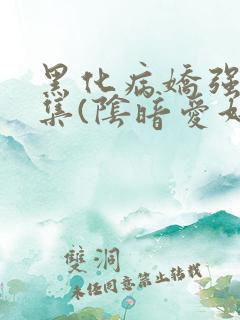 黑化病嬌强
集(陰暗愛
雙洞
未经同意禁止转载